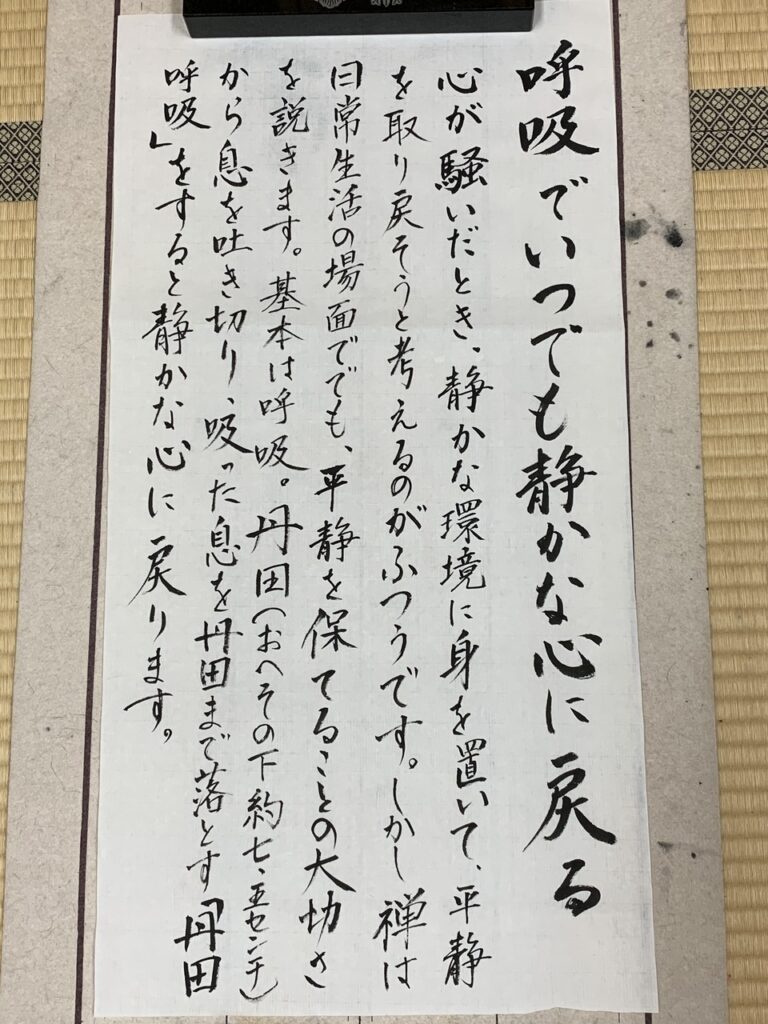 呼吸でいつでも静かな心に戻る
心が騒いだとき、静かな環境に身を置いて、平静
を取り戻そうと考えるのがふつうです。しかし禅は
日常生活の場面ででも、平静を保てることの大切さ
を説きます。基本は呼吸。丹田(おへその下約七、五センチ)
から息を吐き切り、吸った息を丹田まで落とす「丹田
呼吸」をすると静かな心に戻ります。